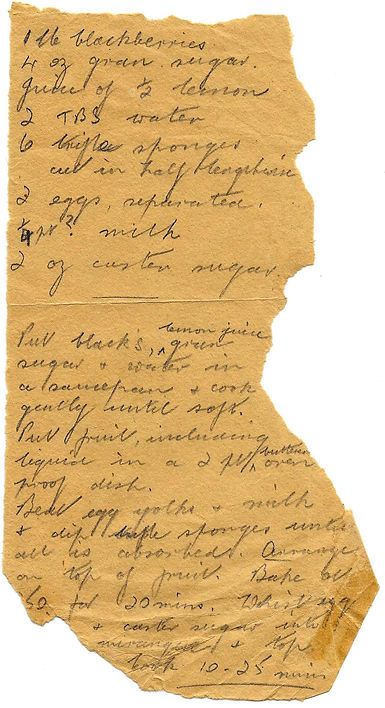 1 lb blackberries
4 oz gran. sugar.
Juice of ½ lemon
2 TBS water
6 trifle sponges
cut in half lengthwise
2 eggs, separated.
¼ pt? milk
2 oz caster sugar.
Put black's, lemon juice gran
sugar & water in
a saucepan & cook
gently until soft.
Put fruit, including
liquid in a 2 pt, buttered oven
proof dish.
Beat egg yolks & milk
& dip trifle sponges until
all is absorbed. Arrange
on top of fruit. Bake at
for 20 mins. Whisk egg
& caster sugar into
& top
cook 10-25 mins